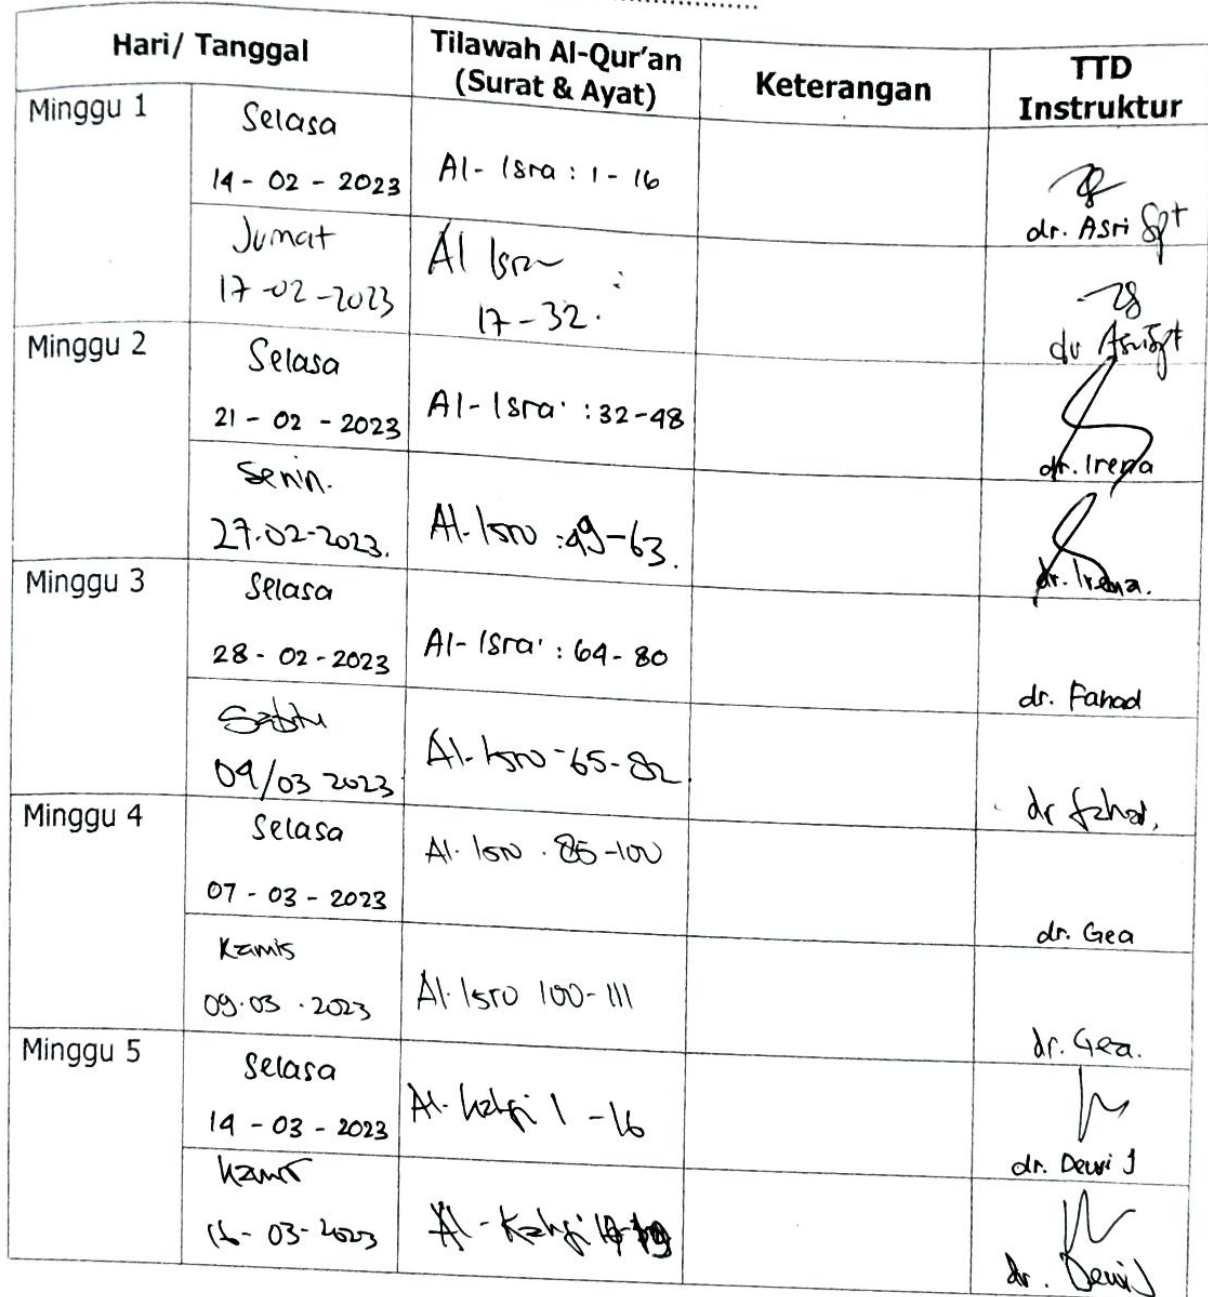 Hari/ Tanggal
Tilawah Al-Qur'an
(Surat & Ayat)
Keterangan
TTD
Instruktur
Minggu 1
Selasa
14 - 02 - 2023
Al- Isra : 1 - 16
dr. Asri Spt
Jumat
17 -02 -2023
Al Isra :
17-32.
dr Asri Spt
Minggu 2
Selasa
21 - 02 - 2023
Al- Isra' : 32-48
dr. Irena
Senin.
27.02-2023.
Al-Isro : 49-63.
dr. Irena.
Minggu 3
Selasa
28 - 02 - 2023
Al- Isra' : 64 - 80
dr. Fahad
Sabtu
04/03 2023
Al-Isro -65-82
dr fahad,
Minggu 4
Selasa
07 - 03 - 2023
Al. Isro . 85-100
dr. Gea
Kamis
09.03 . 2023
Al. Isro 100-111
dr. Gea.
Minggu 5
Selasa
14 - 03 - 2023
Al- Kahfi 1 -16
dr. Dewi J
Kamis
16- 03- 2023
Al - Kahfi
dr. Dewi J